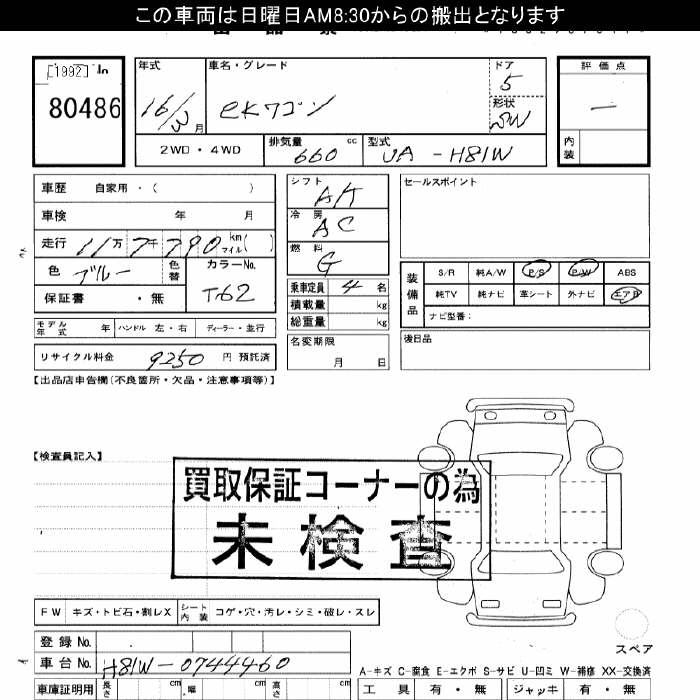 この車両は日曜日AM8:30からの搬出となります
[1992]
80486
年式
16/3月
車名・グレード
eKワゴン
ドア
5
形状
SW
評価点
—
内装
2WD・4WD
排気量 660 cc
型式 UA-H81W
車歴 自家用・( )
車検 年 月
走行 11万7千790 km マイル( )
色 ブルー 色替
カラーNo. T62
保証書 ・無
シフト AT
冷房 AC
燃料 G
乗車定員 4 名
積載量 kg
総重量 kg
名変期限
月 日
セールスポイント
装備品
S/R 純A/W P/S P/W ABS
純TV 純ナビ 革シート 外ナビ エアB
ナビ型番:
後日品
モデル年式 年 ハンドル 左・右 ディーラー・並行
リサイクル料金 9250 円 預託済
【出品店申告欄(不良箇所・欠品・注意事項等)】
【検査員記入】
買取保証コーナーの為
未検査
FW キズ・トビ石・割レX シート内装 コゲ・穴・汚レ・シミ・破レ・スレ
スペア
登録No.
車台No. H81W-0744460
A-キズ C-腐食 E-エクボ S-サビ U-凹ミ W-補修 XX-交換済
車庫証明用 長さ cm 幅 cm 高さ cm
工具 有・無 ジャッキ 有・無